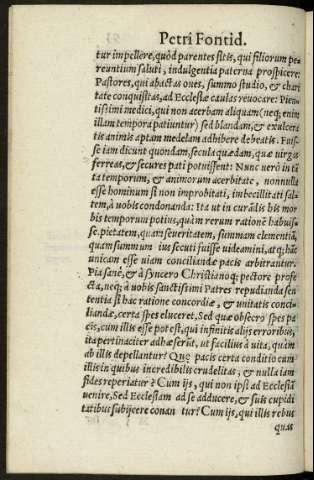 Petri Fontid.
tur impellere, quòd parentes sitis, qui filiorum pe
reuntium saluti, indulgentia paterna prospicere:
Pastores, qui abactas oues, summo studio, & chari
tate conquisitas, ad Ecclesiæ caulas reuocare: Pien
tissimi medici, qui non acerbam aliquam (neq; enim
illam tempora patiuntur) sed blandam, & exulcera
tis animis aptam medelam adhibere debeatis. Fuis-
se iam dicunt quondam, secula quædam, quæ uirgas
ferreas, & secures pati potuissent: Nunc uerò in tã
ta temporum, & animorum acerbitate, nonnulla
esse hominum si non improbitati, imbecillitati sal-
tem, à uobis condonanda: Ita ut in curãdis his mor
bis temporum potius, quàm rerum rationẽ habuis-
se. pietatem, quàm seueritatem, summam clementiã,
quàm summum ius secuti fuisse uideamini, atq; hãc
unicam esse uiam conciliandæ pacis arbitrantur.
Pia sanè, & à syncero Christianoq; pectore profe
cta, neq; à uobis sanctissimi Patres repudianda sen
tentia si hac ratione concordiæ, & unitatis conci-
liandæ, certa spes eluceret, Sed quæ obsecro spes pa
cis, cum illis esse potest, qui infinitis alijs erroribus,
ita pertinaciter adhæserũt, ut facilius à uita, quàm
ab illis depellantur? Que pacis certa conditio cum
illis in quibus incredibilis crudelitas, & nulla iam
fides reperiatur? Cum ijs, qui non ipsi ad Ecclesiã
uenire, Sed Ecclesiam ad se adducere, & suis cupidi
tatibus subijcere conan tur? Cum ijs, qui illis rebus
quas